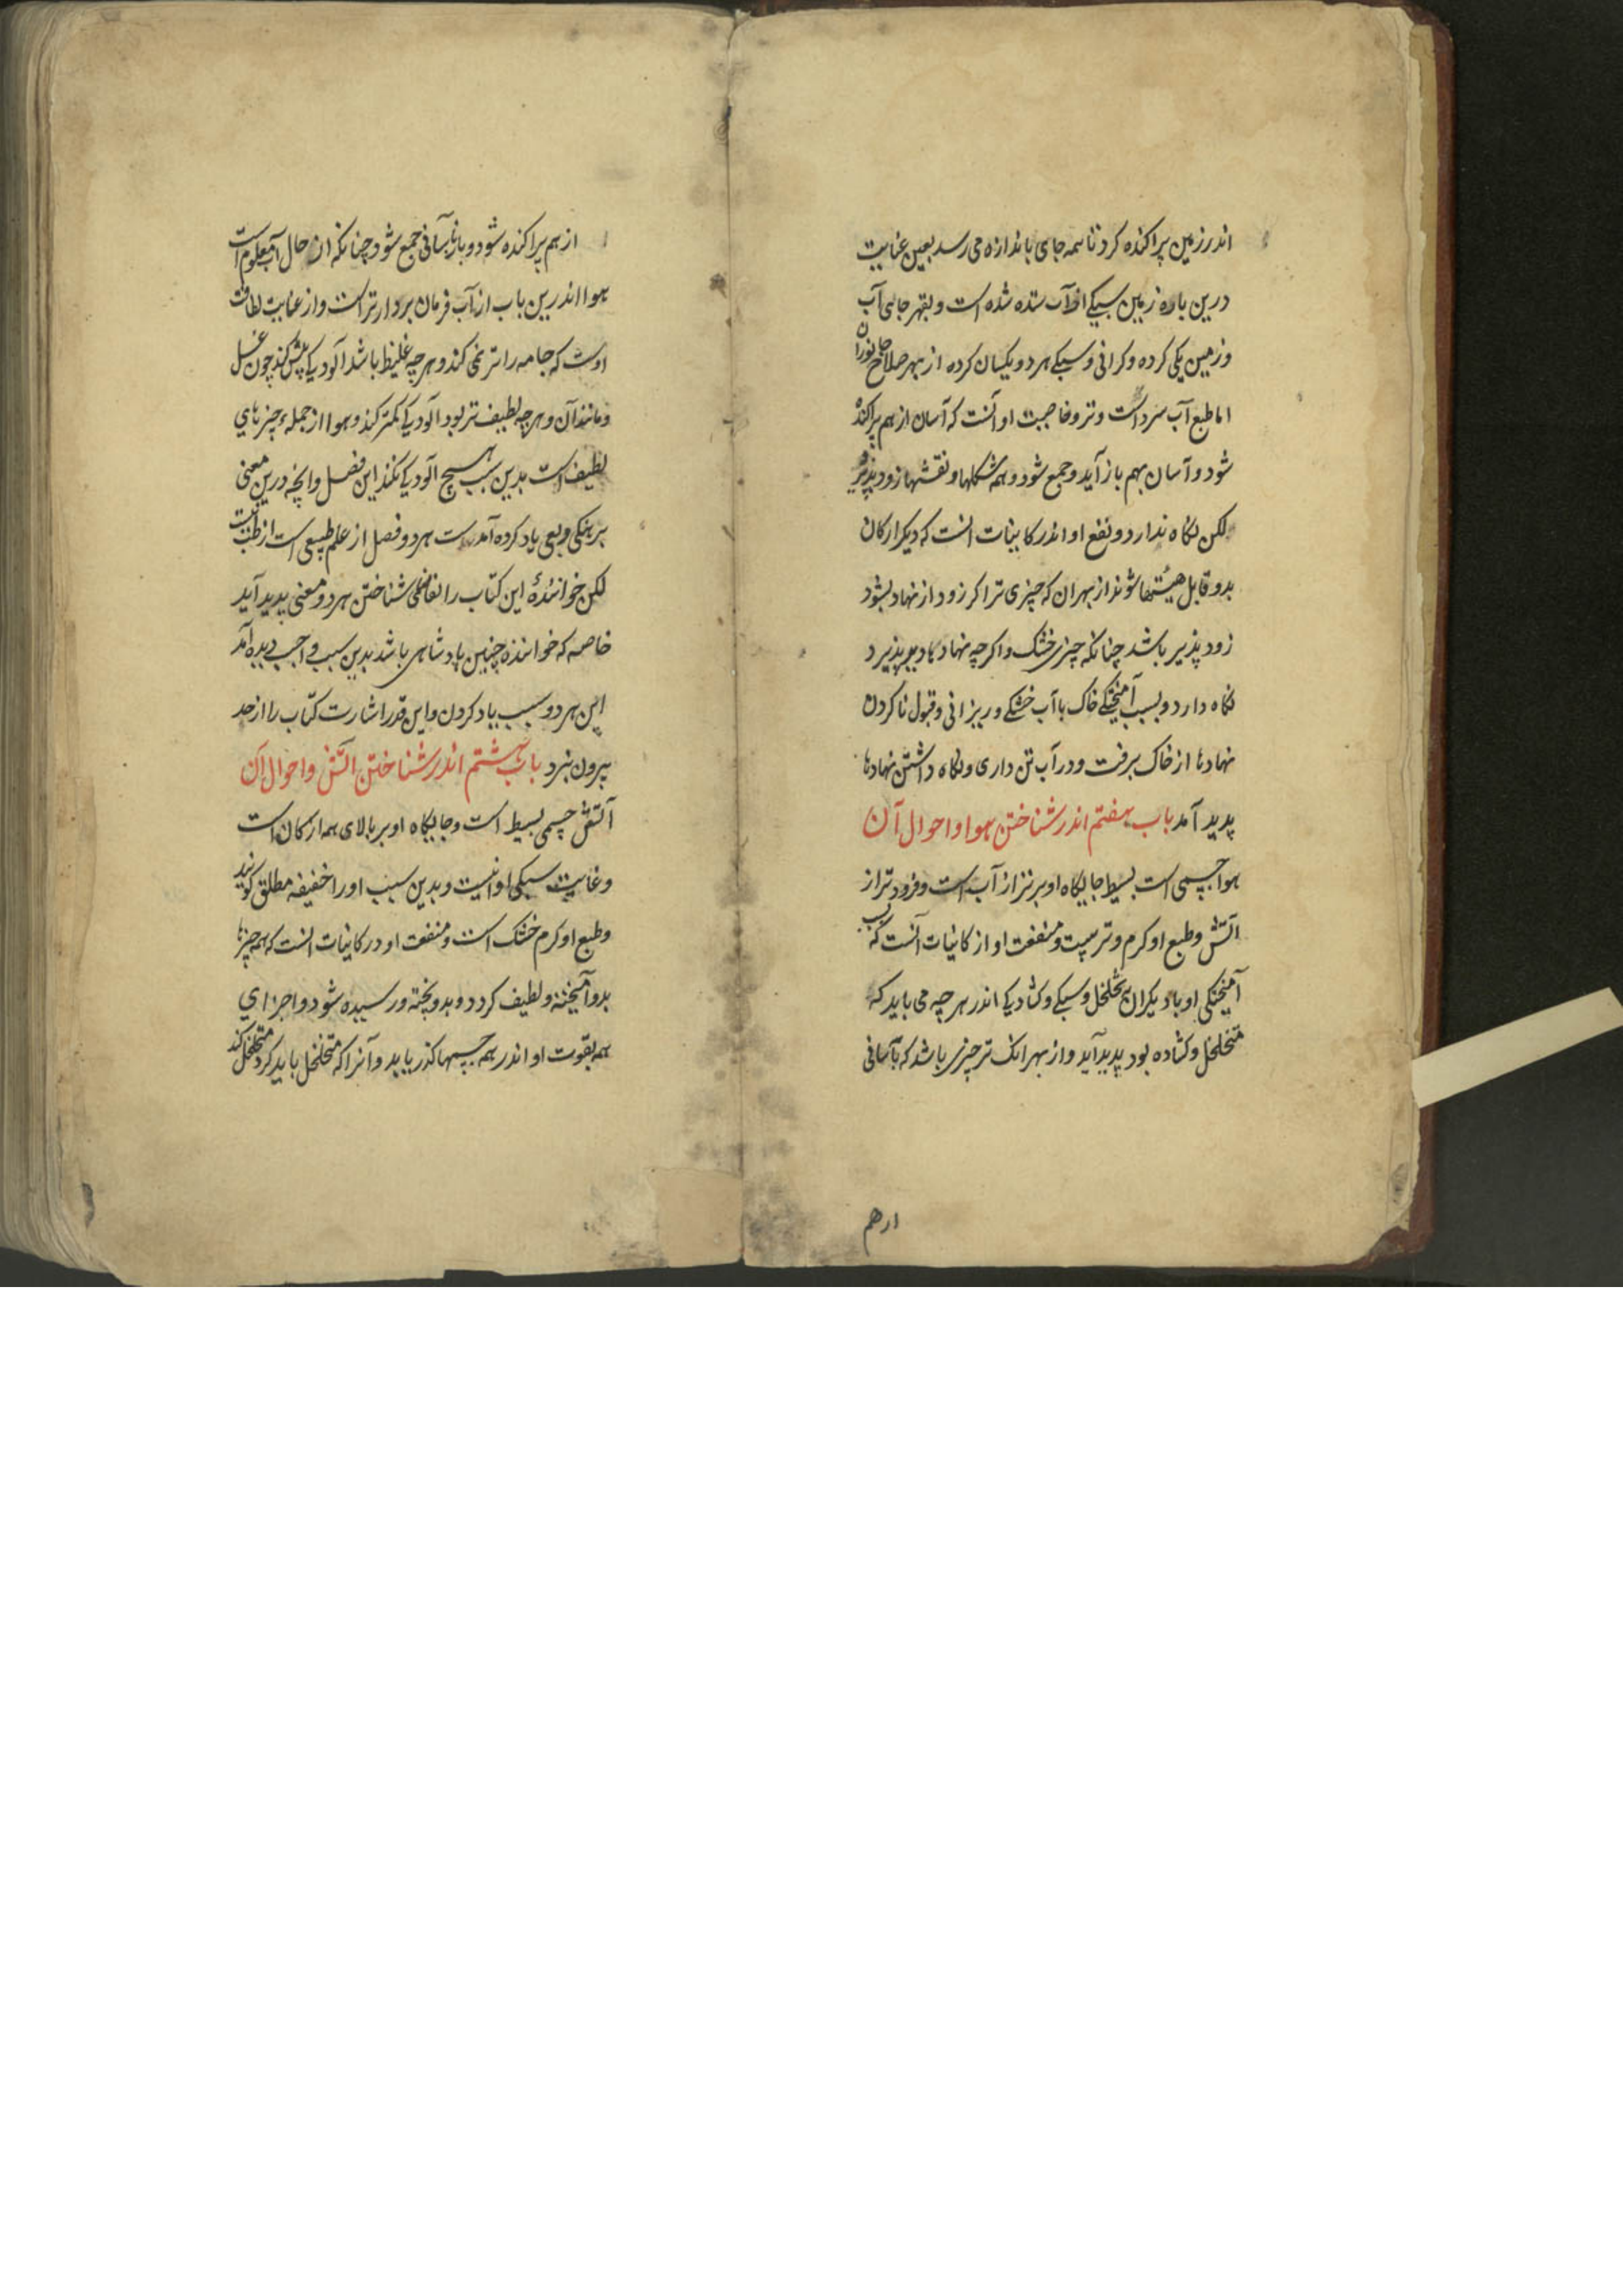 اندر زمین پراکنده کرد تا همه جای باندازه می رسد بعین عنایت
درین باره زمین سبکی از آب ستده شده است و بقهر جای آب
و زمین یکی کرده و کرانی و سبکی هر دو یکسان کرده از بهر صلاح جانوران
اما طبع آب سرد است و تر و خاصیت او آنست که آسان از هم پراکنده
شود و آسان بهم باز آید و جمع شود و همه شکلها و نقشها زود پذیرد
لکن نکاه ندارد و نفع او اندر کاینات انست که دیکر ارکان
بدو قابل هیئتها شوند از بهر ان که چیزی تر اکر زود از نهاد بشود
زود پذیر باشد چنانکه چیزی خشک و اکرچه نهادها دیر پذیرد
نکاه دارد و بسبب آمیختکی خاک با آب خشکی و ریزانی و قبول ناکردن
نهادها از خاک برفت و در آب تن داری و نکاه داشتن نهادها
پدید آمد باب هفتم اندر شناختن هوا و احوال آن
هوا جسمی است بسیط جایکاه او برتر از آب است و فرودتر از
آتش و طبع او کرم و ترست و منفعت او از کاینات آنست که بسبب
آمیختکی او با دیکران تخلخل و سبکی و کشادیکی اندر هرچه می باید که
متخلخل و کشاده بود پدید آید و از بهر انک تر چیزی باشد که بآسانی
ارهم
از هم پراکنده شود و باز بآسانی جمع شود چنانکه از حال آب معلوم است
هوا اندرین باب از آب فرمان بردارتر است و از غایت لطافت
اوست که جامه را تر نمی کند و هرچه غلیظ باشد آلودیکی بیش کند چون عسل
و مانند آن و هرچه لطیف تر بود آلودیکی کمتر کند و هوا از جمله چیزهای
لطیف است بدین سبب هیچ آلودیکی نکند این فصل و انچه درین معنی
یاد کرده آمدست هر دو فصل از علم طبیعی است از طب نیست
لکن خوانندۀ این کتاب را شناختن هر دو معنی پدید آید
خاصه که خواننده چنین پادشاهی باشد بدین سبب واجب دیده آمد
این هر دو سبب یاد کردن و این قدر اشارت کتاب را از حد
بیرون نبرد باب هشتم اندر شناختن آتش و احوال آن
آتش جسمی بسیط است و جایکاه او بر بالای همه ارکان است
و غایت سبکی او انیست و بدین سبب او را خفیفه مطلق کویند
و طبع او کرم خشک است و منفعت او در کاینات انست که همه چیزها
بدو آمیخته و لطیف کردد و بدو پخته و رسیده شود و اجزای
همه بقوت او اندر همه جسمها کذر یابد و آنرا که متخلخل باید کرد متخلخل کند